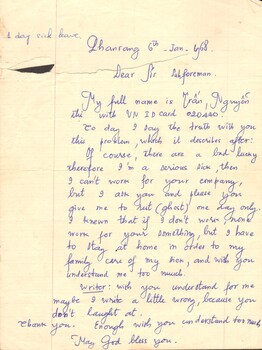 1 day sick leave.
Phanrang 6th - Jan - 68
Dear Sir Asforeman.
My full name is Trần, Nguyễn
thi with VN ID card 020440.
To day I say the truth with you
this problem, which it describes after:
Of course, there are a bad lucky
therefore I'm a serious sick, then
I can't worn for your company,
but I ask you and please you
give me to Rut (ghost) one day only
I known that if I don't worn, none
worn for your something, but I have
to stay at home in order to my
family care of my hon, and with you
understand me too much.
Writer: with you understand for me
maybe I write a little wrong, because you
don't laught at.
Thank you. Enough with you understand too much
May God bless you.